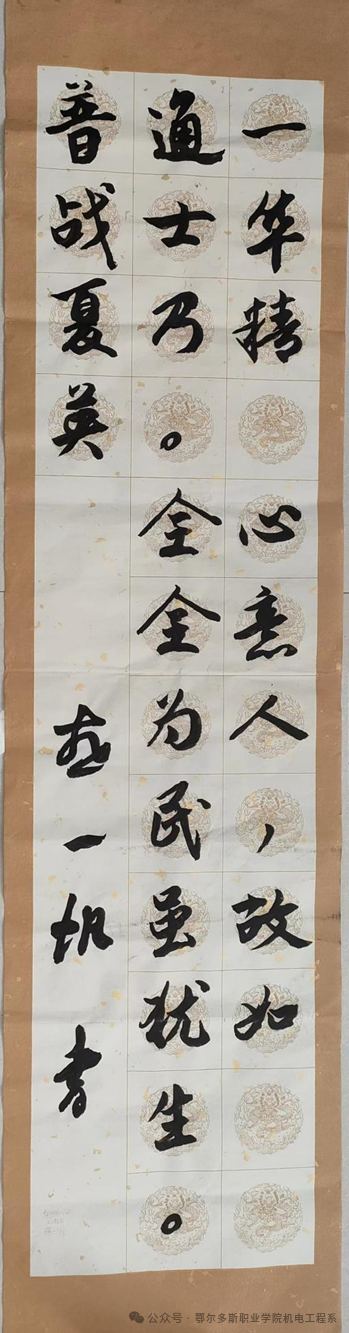 普通一
战士华
夏乃精
英。
全心
全意
为人
民，
虽故
犹如
生
。
一帆书
公众号·鄂尔多斯职业学院机电工程系